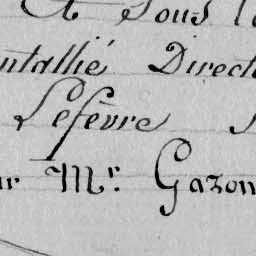 et sous l
ntallié Direct
Lefèvre
r Mr. Gazon